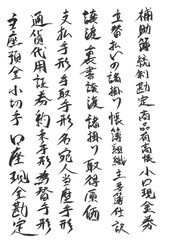 補助簿統制勘定商品有高帳小口現金券
立替払いの諸掛り帳簿組織主要簿仕訳
譲渡裏書譲渡諸掛り取得価
支払手形受取手形名宛人当座手形
通貨代用証券約束手形為替手形
当座預金小切手口座現金勘定